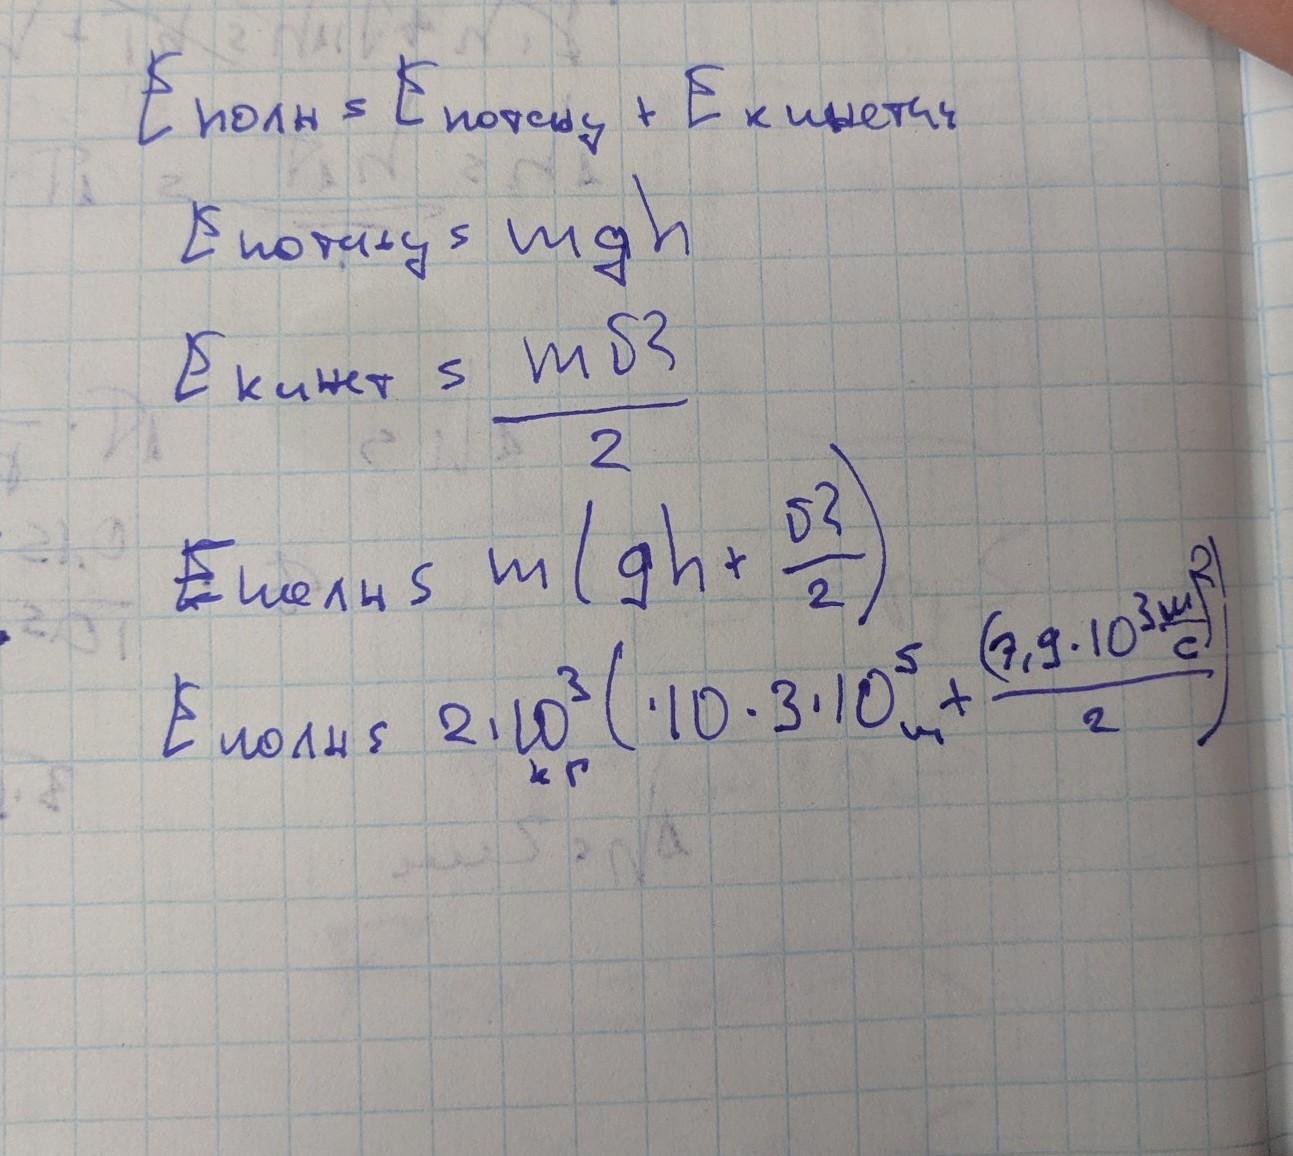 Eполн = Eпотенц + Eкинетич
Eпотенц = mgh
Eкинет = mv²/2
Eполн = m(gh + v²/2)
Eполн = 2·10³кг(·10·3·10⁵м + (7,9·10³м/с)²/2)